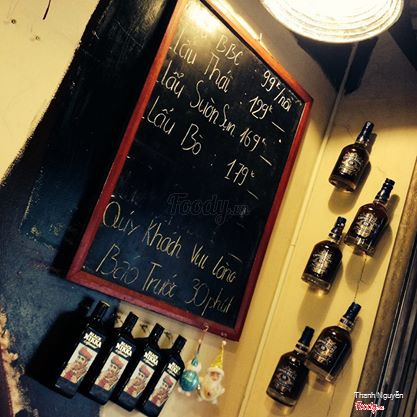 BBC 99k/nồi
Lẩu Thái 129k
Lẩu Sườn Sụn 169k
Lẩu Bò : 179k
Foody.vn
Qúy Khách Vui lòng
Báo Trước 30 phút
Thanh Nguyễn
Foody.vn